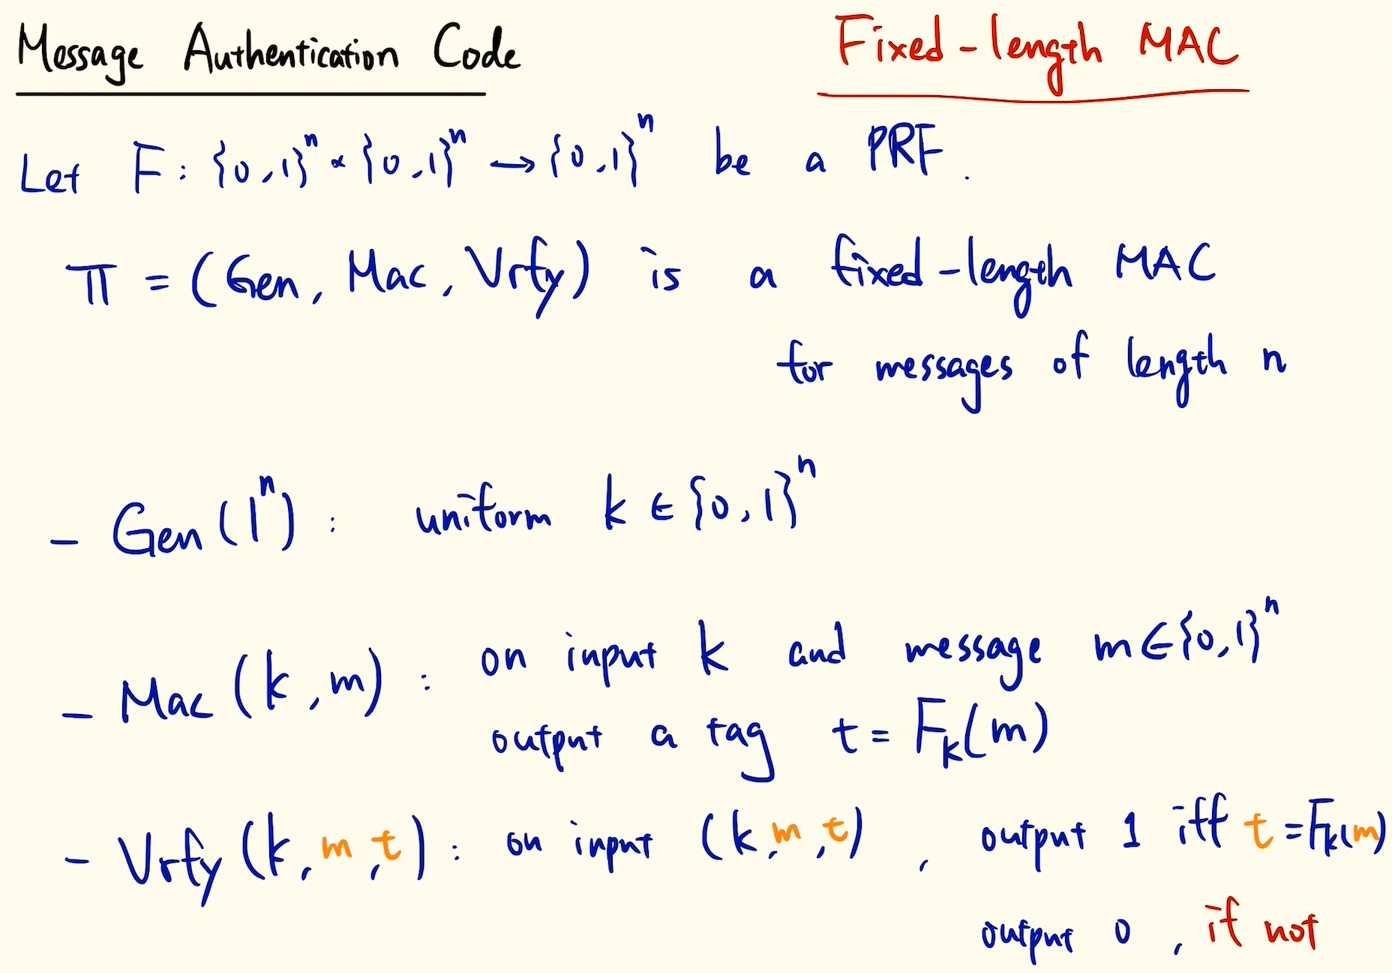 Message Authentication Code
Fixed-length MAC
Let F : {0,1}ⁿ × {0,1}ⁿ → {0,1}ⁿ be a PRF.
π = (Gen, Mac, Vrfy) is a fixed-length MAC
for messages of length n
- Gen(1ⁿ) : uniform k ∈ {0,1}ⁿ
- Mac(k,m) : on input k and message m ∈ {0,1}ⁿ
output a tag t = Fₖ(m)
- Vrfy(k,m,t) : on input (k,m,t), output 1 iff t = Fₖ(m)
output 0, if not